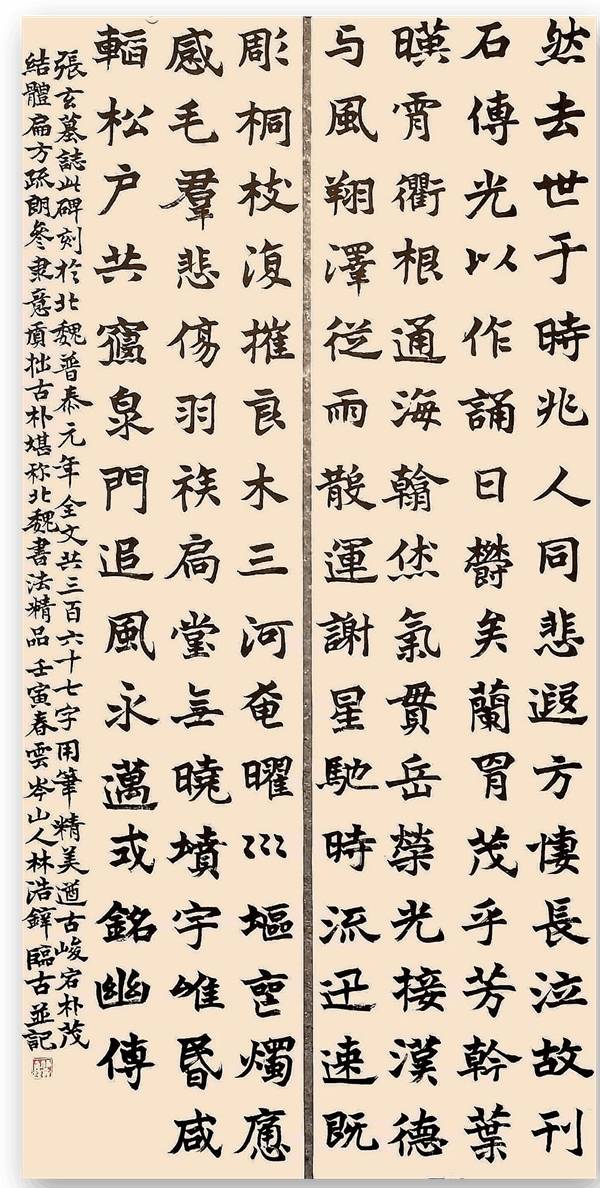 然去世于時兆人同悲遐方悽長泣故刊
石傳光以作誦曰欝矣蘭胃茂乎芳幹葉
暎霄衢根通海翰烋氣貫岳榮光接漢德
与風翔澤從雨散運謝星馳時流迅速既
彫桐枝復摧良木三河奄曜巛塸燭應
感毛羣悲傷羽族扃堂無曉墳宇唯昏咸
轁松户共寢泉門追風永邁式銘幽傳
張玄墓誌此碑刻於北魏普泰元年全文共三百六十七字用筆精美遒古峻宕朴茂
結體扁方疏朗參隶意質拙古朴堪称北魏書法精品壬寅春雲岑山人林浩臨古並記